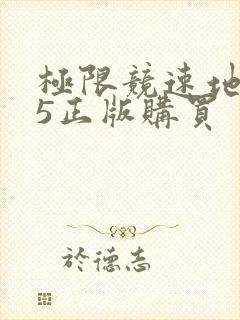 極限競速地
5正版購買
於德志